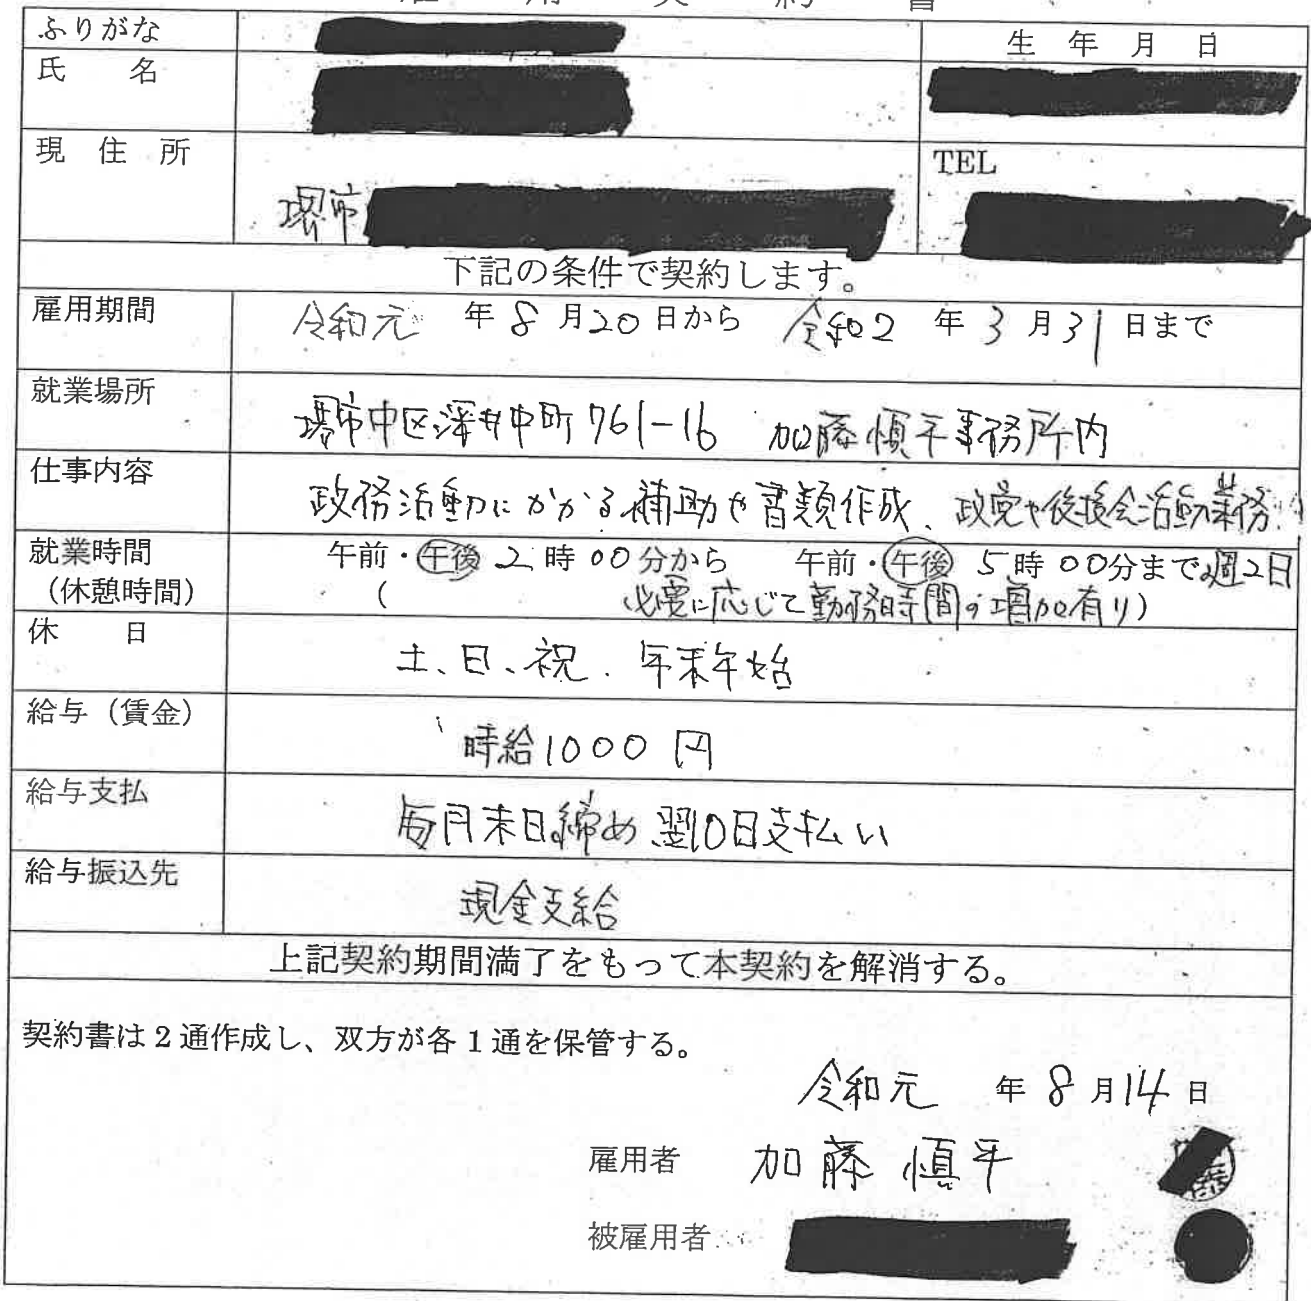 雇用契約書
ふりがな
生年月日
氏名
現住所
TEL
堺市
下記の条件で契約します。
雇用期間 令和元年8月20日から 令和2年3月31日まで
就業場所 堺市中区深井中町761-16 加藤慎平事務所内
仕事内容 政務活動にかかる補助や書類作成、政党や後援会活動業務
就業時間 午前・午後2時00分から 午前・午後5時00分まで週2日
(休憩時間) ( 必要に応じて勤務時間の増加有り)
休日 土、日、祝、年末年始
給与(賃金) 時給1000円
給与支払 毎月末日締め翌10日支払い
給与振込先 現金支給
上記契約期間満了をもって本契約を解消する。
契約書は2通作成し、双方が各1通を保管する。
令和元年8月14日
雇用者 加藤慎平
被雇用者